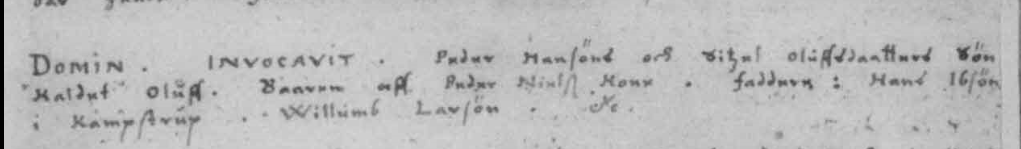 DOMIN . INVOCAVIT . Peder Hansöns och Sitzel Olüffsdaatters Sön
Kaldet Olüff . Baaren aff Peder Nielß Kone . Faddere : Hans Ibsön
i Kampstrup . Willumb Larsön . &c .